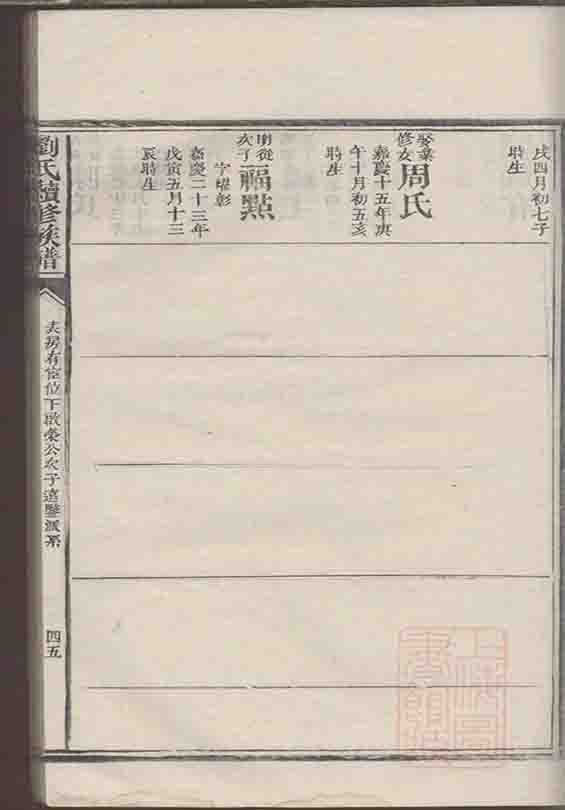 戌四月初七子
時生
娶業
修女
周氏
嘉慶十五年庚
午十月初五亥
時生
明從
次子
福點
字燿彰
嘉慶二十三年
戊寅五月十三
辰時生
劉氏續修族譜
長房有宦位下啟榮公次子這鑒派系
四五
上海圖
書館藏